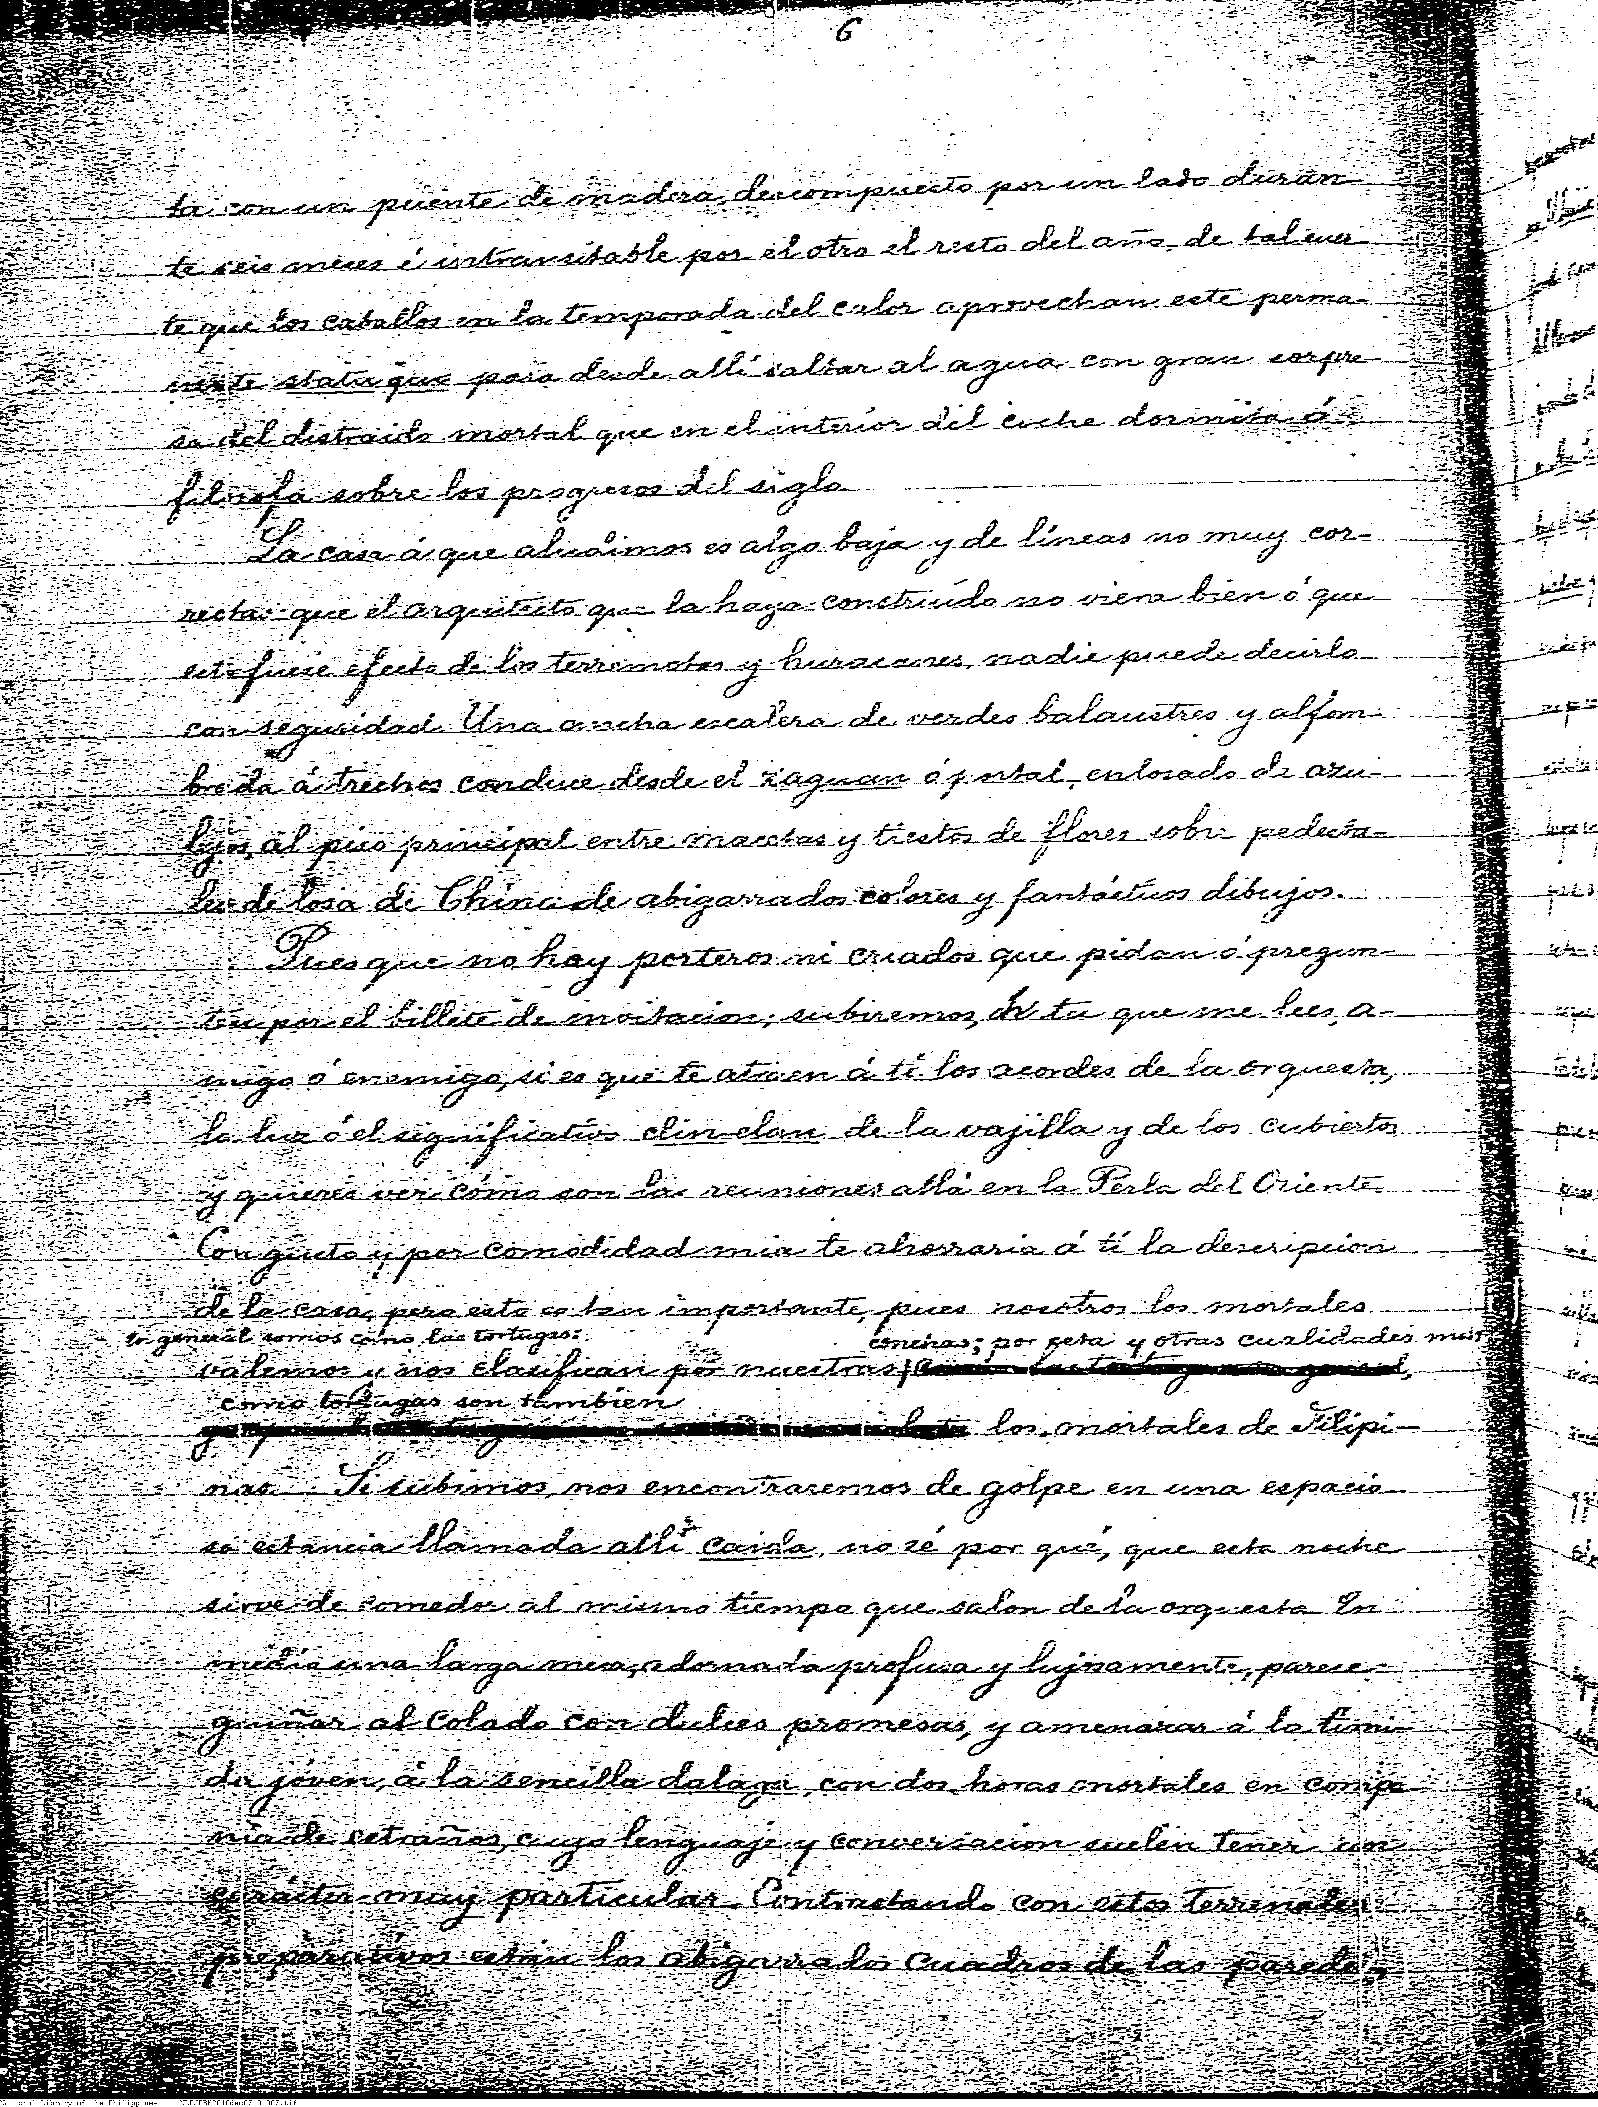 6
ta con un puente de madera, descompuesto por un lado duran
te seis meses é intransitable por el otro el resto del año, de tal suer
te que los caballos en la temporada del calor aprovechan este perma-
nente statu quo para desde allí saltar al agua con gran sorpre
sa del distraido mortal que en el interior del coche dormita ó
filosofa sobre los progresos del siglo
La casa á que aludimos es algo baja y de líneas no muy cor-
rectas: que el arquitecto que la haya construído no viera bien ó que
esto fuese efecto de los terremotos y huracanes, nadie puede decirlo
con seguridad. Una ancha escalera de verdes balaustres y alfom-
brada á trechos conduce desde el zaguan ó portal, enlosado de azu-
lejos, al piso principal entre macetas y tiestos de flores sobre pedesta-
les de losa de China de abigarrados colores y fantásticos dibujos.
Pues que no hay porteros ni criados que pidan ó pregun-
ten por el billete de invitacion; subiremos, oh tu que me lees, a-
migo ó enemigo, si es que te atraen á tí los acordes de la orquesta,
la luz ó el significativo clin-clan de la vajilla y de los cubiertos
y quieres ver cómo son las reuniones allá en la Perla del Oriente.
Con gusto y por comodidad mia te ahorraria á tí la descripcion
de la casa, pero esto es tan importante, pues nosotros los mortales
en general somos como las tortugas:
valemos y nos clasifican por nuestras conchas; por esta y otras cualidades mas
como tortugas son tambien
los mortales de Filipi-
nas. Si subimos, nos encontraremos de golpe en una espacio
sa estancia llamada allí caida, no sé por qué, que esta noche
sirve de comedor al mismo tiempo que salon de la orquesta En
medio una larga mesa, adornada profusa y lujosamente, parece
guiñar al colado con dulces promesas, y amenazar á la tími-
da jóven, á la sencilla dalaga, con dos horas mortales en compa
ñia de estraños, cuyo lenguaje y conversacion suelen tener un
carácter muy particular. Contrastando con estos terrenales
preparativos están los abigarrados cuadros de las paredes,